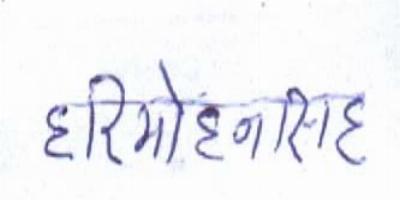 हरिमोहनसिह